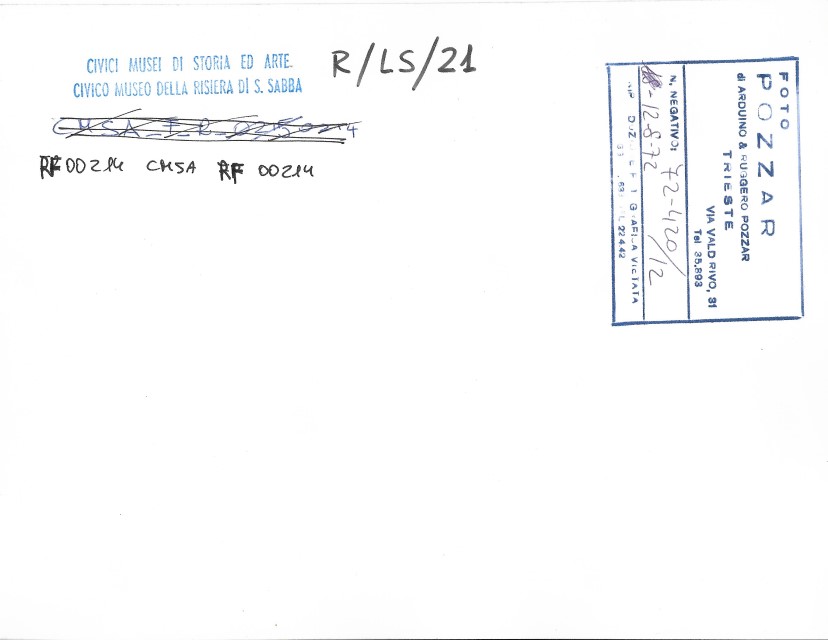 CIVICI MUSEI DI STORIA ED ARTE.
CIVICO MUSEO DELLA RISIERA DI S. SABBA
R/LS/21
RF 00214 CMSA RF 00214
FOTO
POZZAR
di ARDUINO & RUGGERO POZZAR
TRIESTE
VIA VALDIRIVO, 31
Tel 35.893
N. NEGATIVO: 72-420/12
12-8-72
VIETATA
22442